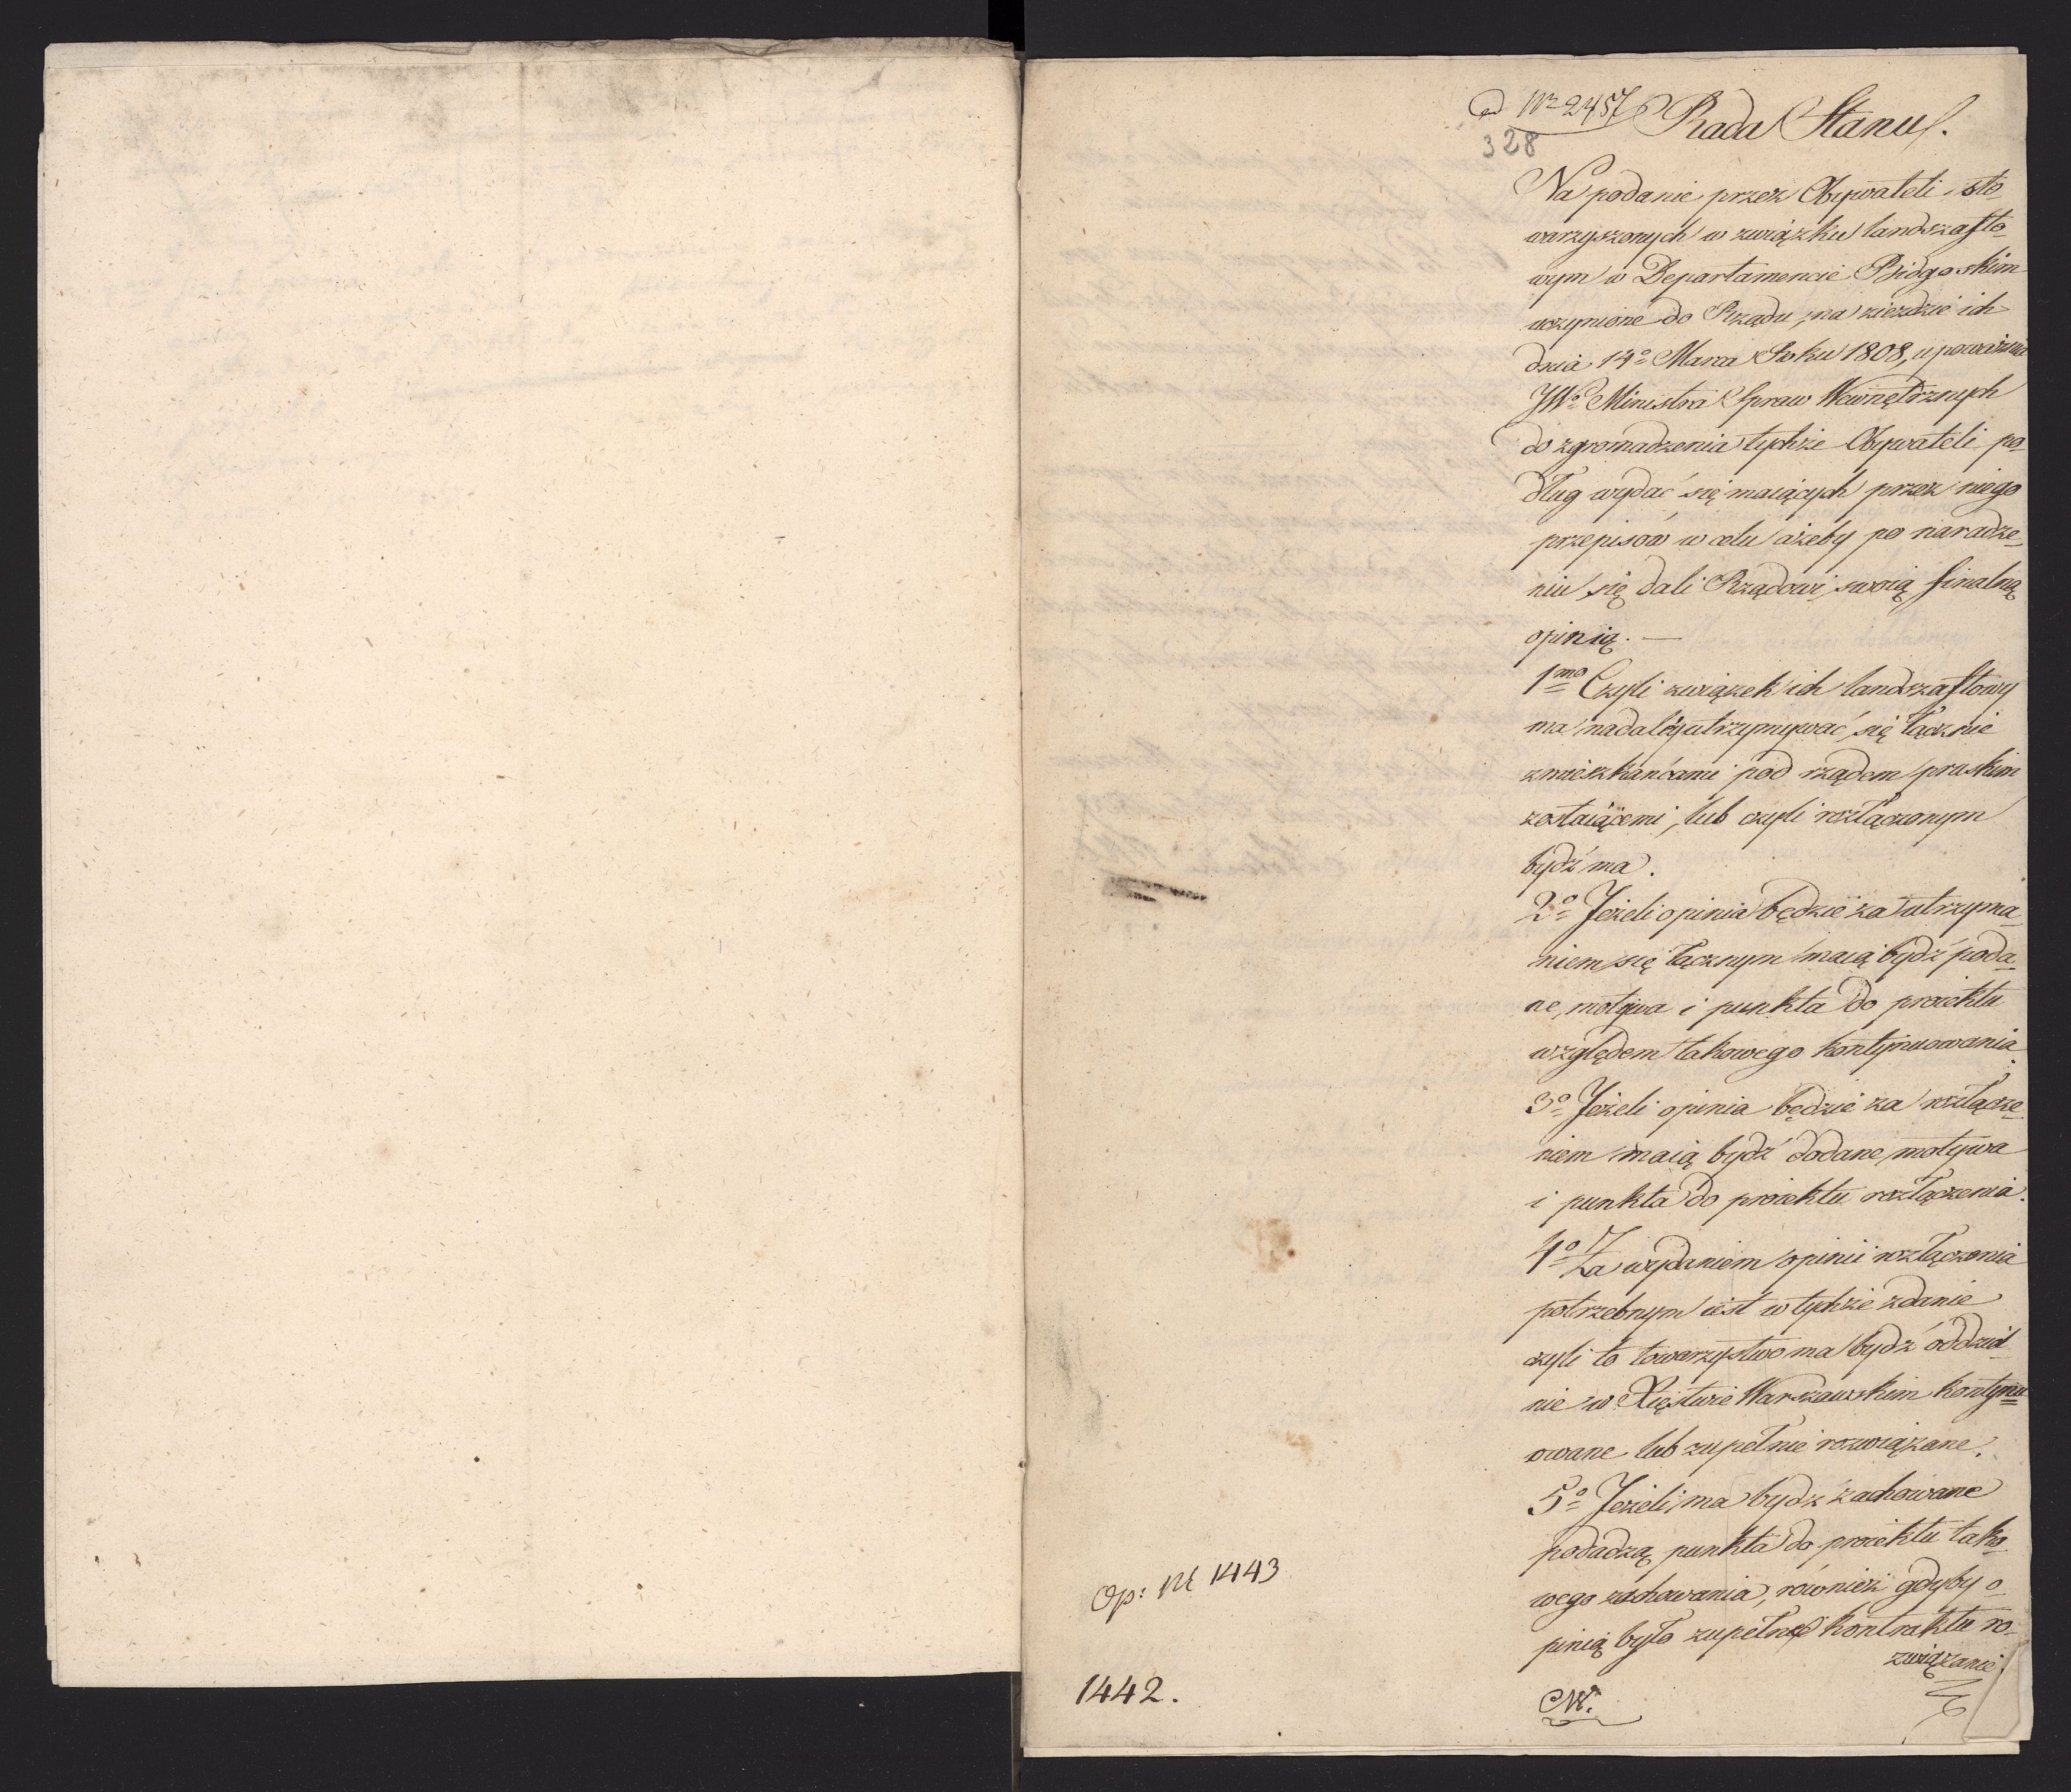 ad Nr 2457
328
Rada Stanu.
Na podanie przez Obywateli sto-
warzyszonych w związku landszafto-
wym w Departamencie Bidgoskim
uczynione do Rządu, na zieździe ich
dnia 14o Marca Roku 1808, upoważnia
JWo Ministra Spraw Wewnętrznych
do zgromadzenia tychże Obywateli po-
dług wydać się maiących przez niego
przepisów w celu ażeby po naradze-
niu się dali Rządowi swoią finalną
opinią. —
1mo Czyli związek ich landszaftowy
ma nadal utrzymywać się łącznie
z mieszkańcami pod rządem pruskim
zostaiącemi, lub czyli rozłączonym
bydź ma.
2o Jeżeli opinia będzie za utrzyma-
niem się łącznym maią bydź poda-
ne motywa i punkta do proiektu
względem takowego kontynuowania.
3o Jeżeli opinia będzie za rozłącze-
niem maią bydź dodane motywa
i punkta do proiektu rozłączenia.
4o Za wydaniem opinii rozłączenia
potrzebnym iest w tychże zdanie
czyli to towarzystwo ma bydź oddziel-
nie w Xięstwie Warszawskim kontynu-
owane lub zupełnie rozwiązane.
5o Jeżeli ma bydź zachowane
podadzą punkta do proiektu tako-
wego zachowania, również gdyby o-
pinią było zupełne kontraktu ro-
związanie
Op: Nr 1443
1442.